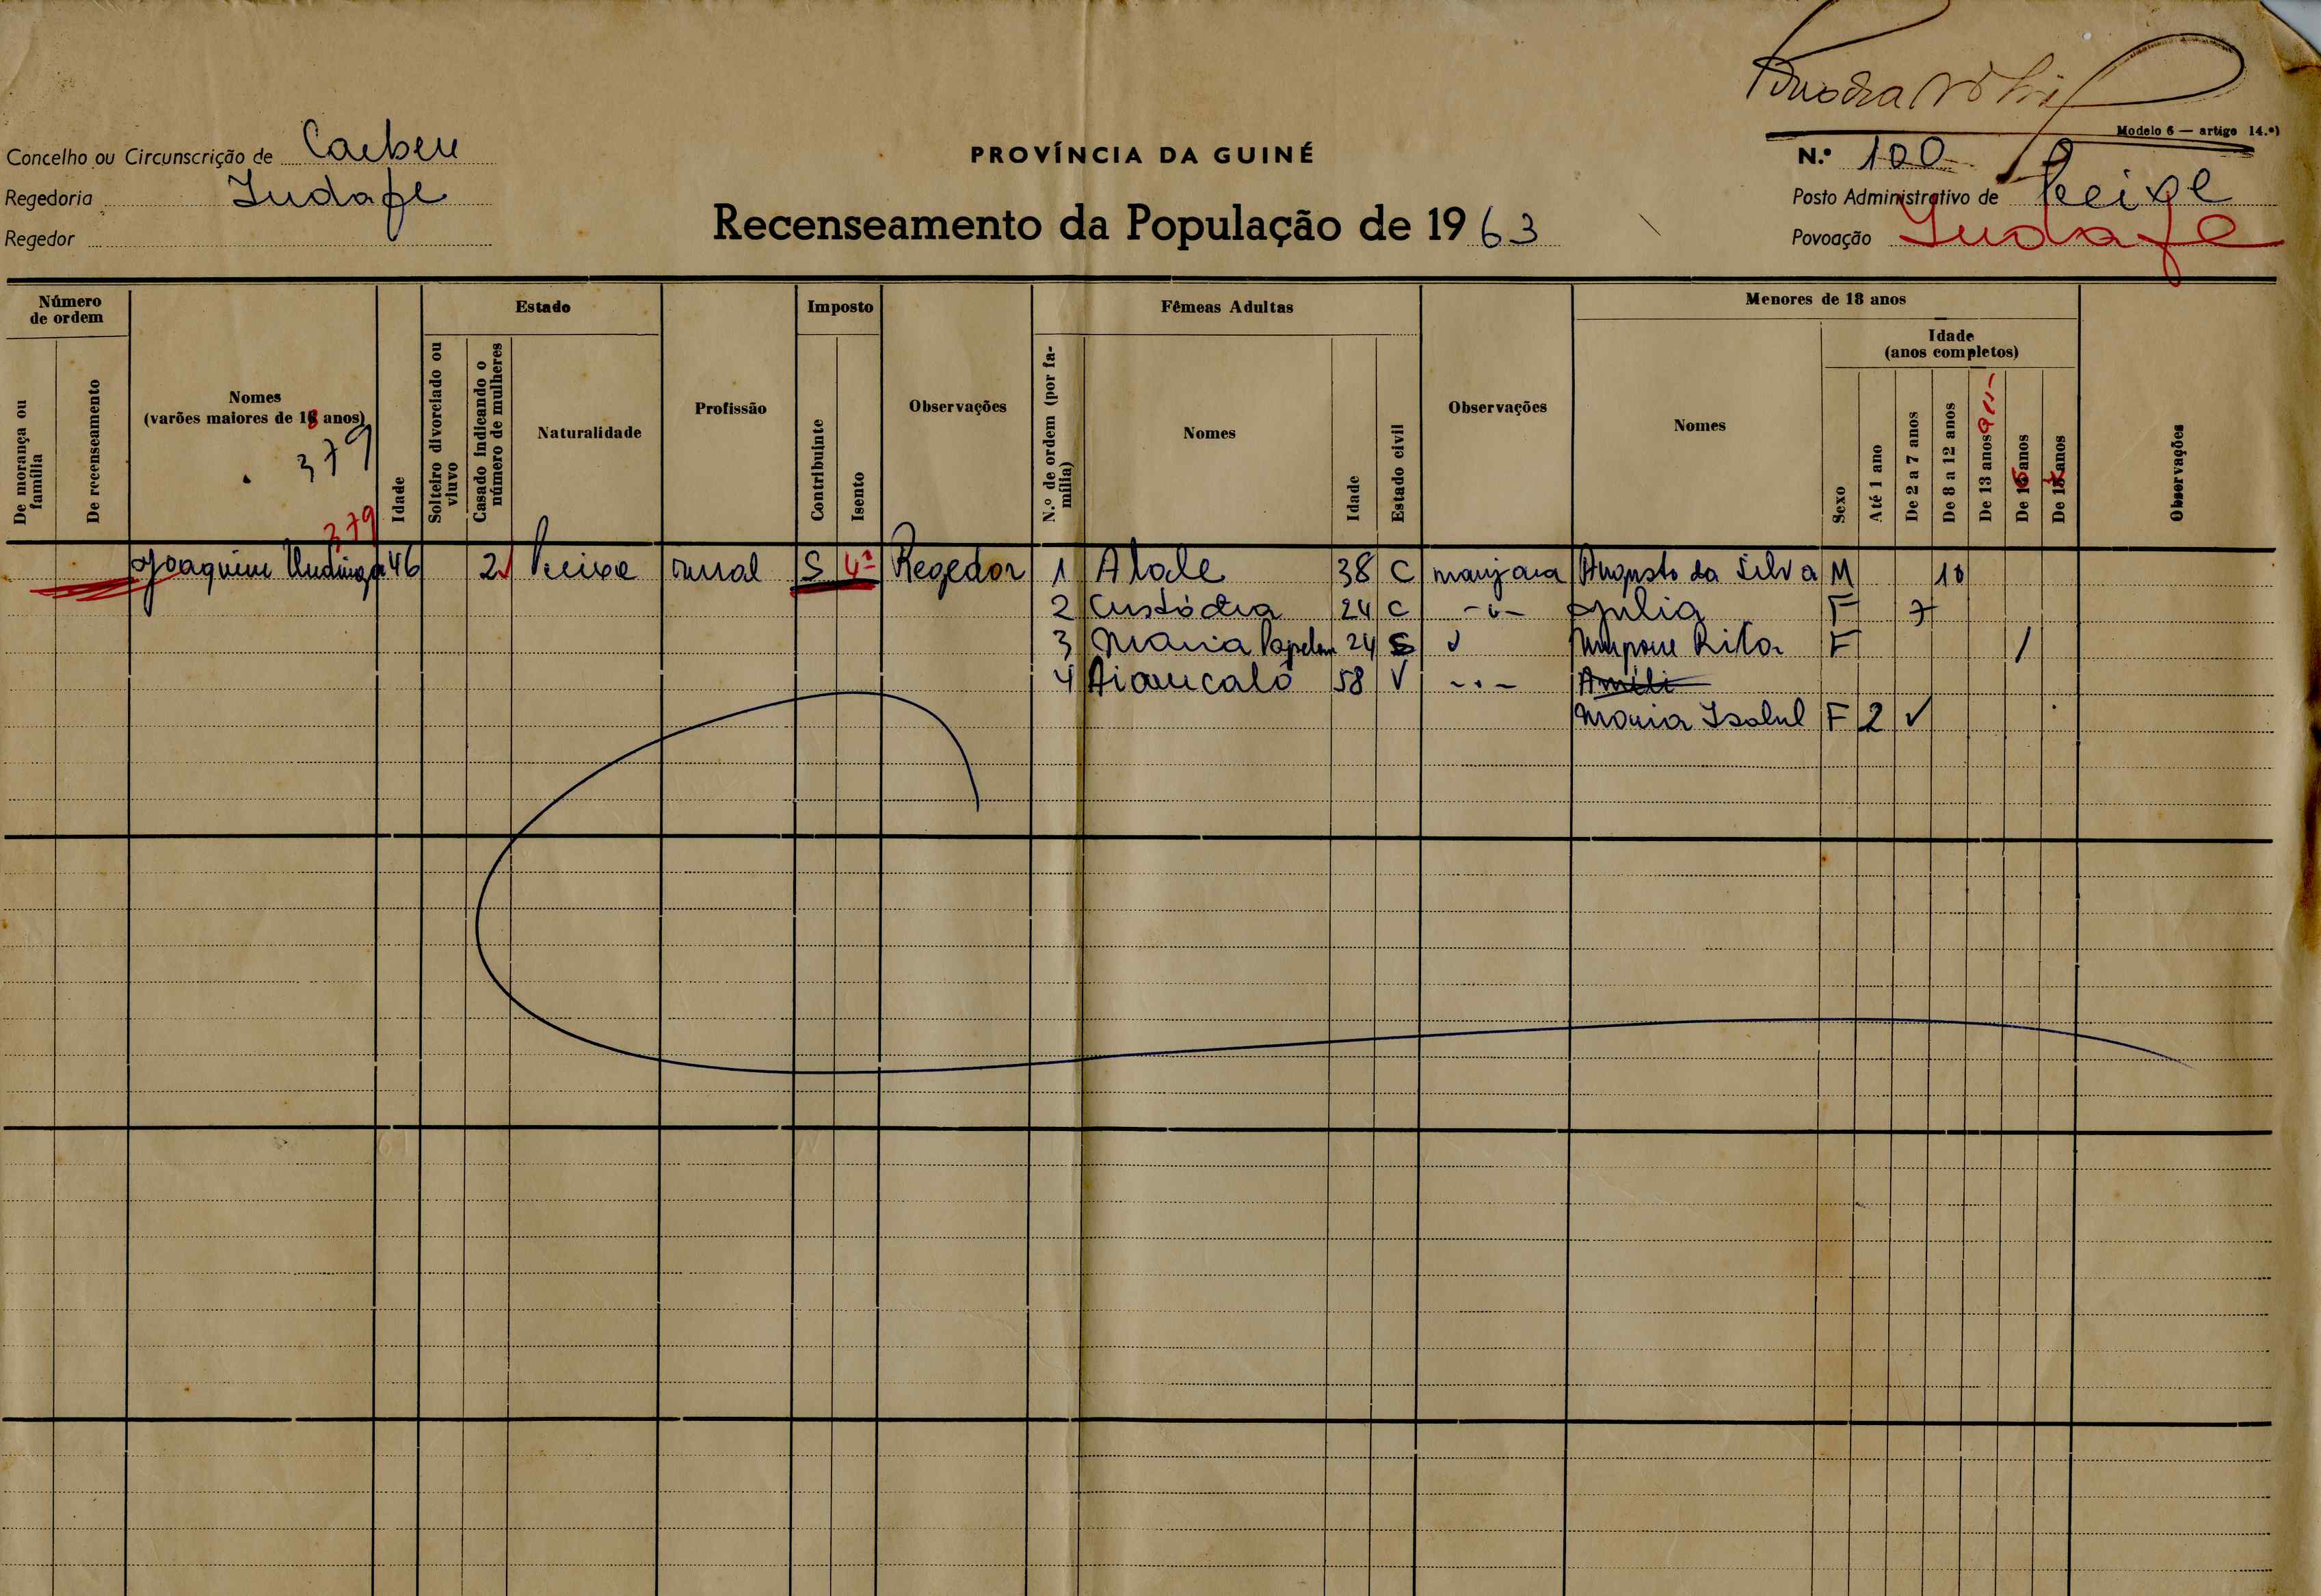 Modelo 6 — artigo 14.º)
Concelho ou Circunscrição de
PROVÍNCIA DA GUINÉ
N.º 100
Regedoria Judafe
Posto Administrativo de Peixe
Regedor
Recenseamento da População de 1963
Povoação Judafe
Número de ordem
Estado
Imposto
Fêmeas Adultas
Menores de 18 anos
Idade (anos completos)
De morança ou família
De recenseamento
Nomes
(varões maiores de 18 anos)
379
379
Idade
Solteiro divorciado ou viuvo
Casado indicando o número de mulheres
Naturalidade
Profissão
Contribuinte
Isento
Observações
N.º de ordem (por família)
Nomes
Idade
Estado civil
Observações
Nomes
Sexo
Até 1 ano
De 2 a 7 anos
De 8 a 12 anos
De 13 anos
De 15 anos
De 18 anos
Observações
Joaquim 46 2 Peixe rural S 4ª Regedor 1 Atale 38 C manjaca Augusto da Silva M 10
2 Custódia 24 C -"- Julia F 7
3 Maria 24 S Rita F /
4 58 V -"- Amili
Maria Isabel F 2